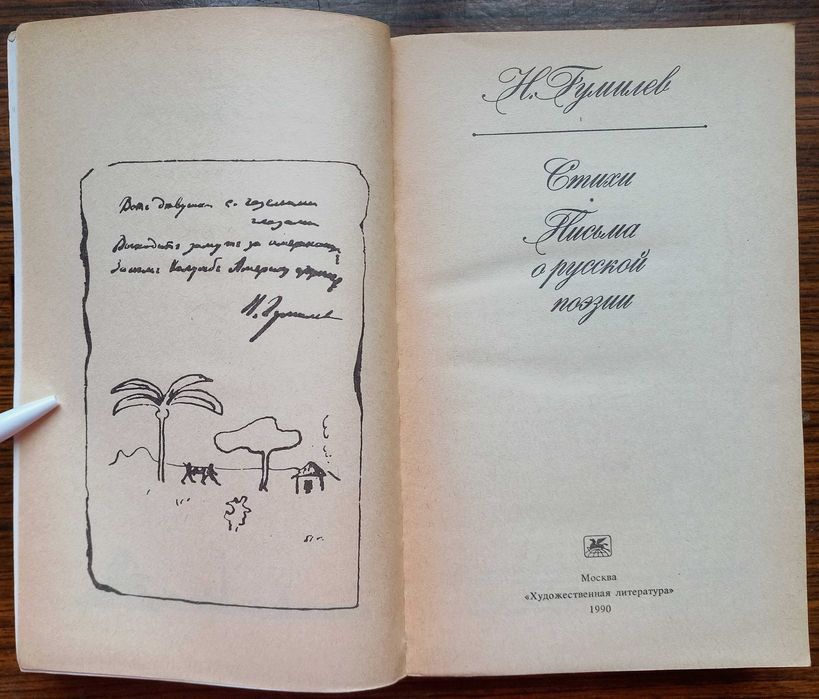 Вотъ дѣвушка съ газельими
глазами
Выходитъ замужъ за американца
Зачѣмъ Колумбъ Америку открылъ
Н. Гумилев
Н. Гумилев
Стихи
Письма
о русской
поэзии
Москва
«Художественная литература»
1990